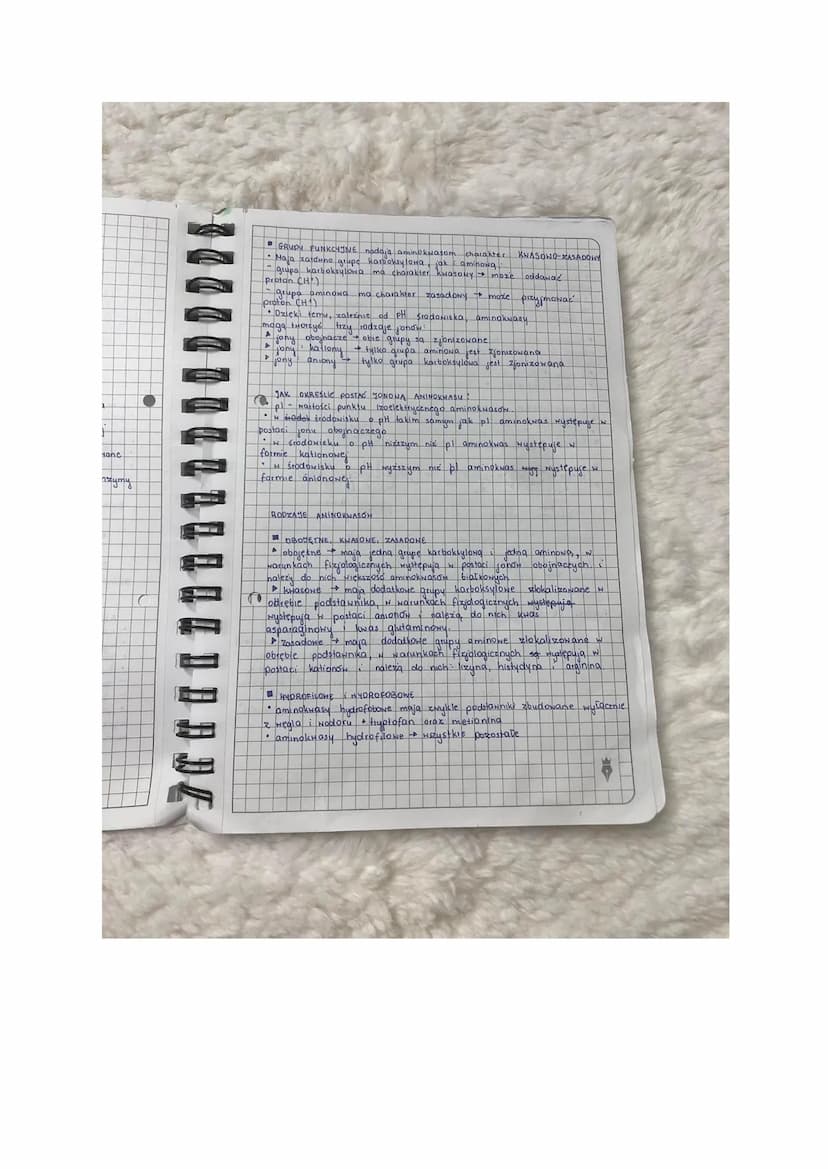 ■ GRUPY FUNKCYJNE nadają aminokwasom charakter KWASOWO-ZASADOWY
• Mają zarówno grupę karboksylową, jak i aminową:
- grupa karboksylowa ma charakter kwasowy → może oddawać
proton (H⁺)
- grupa aminowa ma charakter zasadowy → może przyjmować
proton (H⁺)
• Dzięki temu, zależnie od pH środowiska, aminokwasy
mogą tworzyć trzy rodzaje jonów:
▸ jony obojnacze → obie grupy są zjonizowane
▸ jony kationy → tylko grupa aminowa jest zjonizowana
▸ jony aniony → tylko grupa karboksylowa jest zjonizowana
JAK OKREŚLIĆ POSTAĆ JONOWĄ AMINOKWASU?
• pI - wartości punktu izoelektrycznego aminokwasów
• w środowisku o pH takim samym jak pI aminokwas występuje w
postaci jonu obojnaczego
• w środowisku o pH niższym niż pI aminokwas występuje w
formie kationowej
• w środowisku o pH wyższym niż pI aminokwas występuje w
formie anionowej
RODZAJE AMINOKWASÓW
■ OBOJĘTNE, KWASOWE, ZASADOWE
▸ obojętne → mają jedną grupę karboksylową i jedną aminową, w
warunkach fizjologicznych występują w postaci jonów obojnaczych i
należy do nich większość aminokwasów białkowych
▸ kwasowe → mają dodatkowe grupy karboksylowe zlokalizowane w
obrębie podstawnika, w warunkach fizjologicznych występują
występują w postaci anionów i należą do nich kwas
asparaginowy i kwas glutaminowy
▸ zasadowe → mają dodatkowe grupy aminowe zlokalizowane w
obrębie podstawnika, w warunkach fizjologicznych występują w
postaci kationów i należą do nich: lizyna, histydyna i arginina
■ HYDROFILOWE i HYDROFOBOWE
• aminokwasy hydrofobowe mają zwykle podstawniki zbudowane wyłącznie
z węgla i wodoru + tryptofan oraz metionina
• aminokwasy hydrofilowe → wszystkie pozostałe